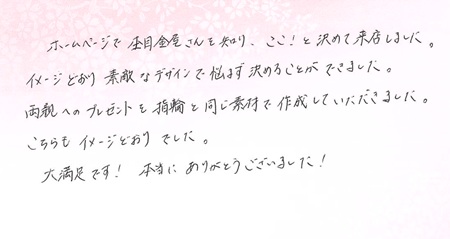 ホームページで杢目金屋さんを知り、ここ！と決めて来店しました。
イメージどおり素敵なデザインで悩まず決めることができました。
両親へのプレゼントも指輪と同じ素材で作成していただきました。
こちらもイメージどおりでした。
大満足です！ 本当にありがとうございました！